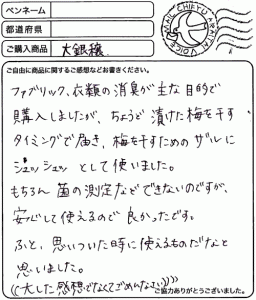 ペンネーム
都道府県
ご購入商品 大銀穣
ご自由に商品に関するご感想などお書きください。
ファブリック、衣類の消臭が主な目的で
購入しましたが、ちょうど漬けた梅を干す
タイミングで届き、梅を干すためのザルに
シュッシュッとして使いました。
もちろん菌の測定などできないのですが、
安心して使えるので良かったです。
ふと、思いついた時に使えるものだなと
思いました。
((大した感想でなくてごめんなさい))
ご協力ありがとうございました。